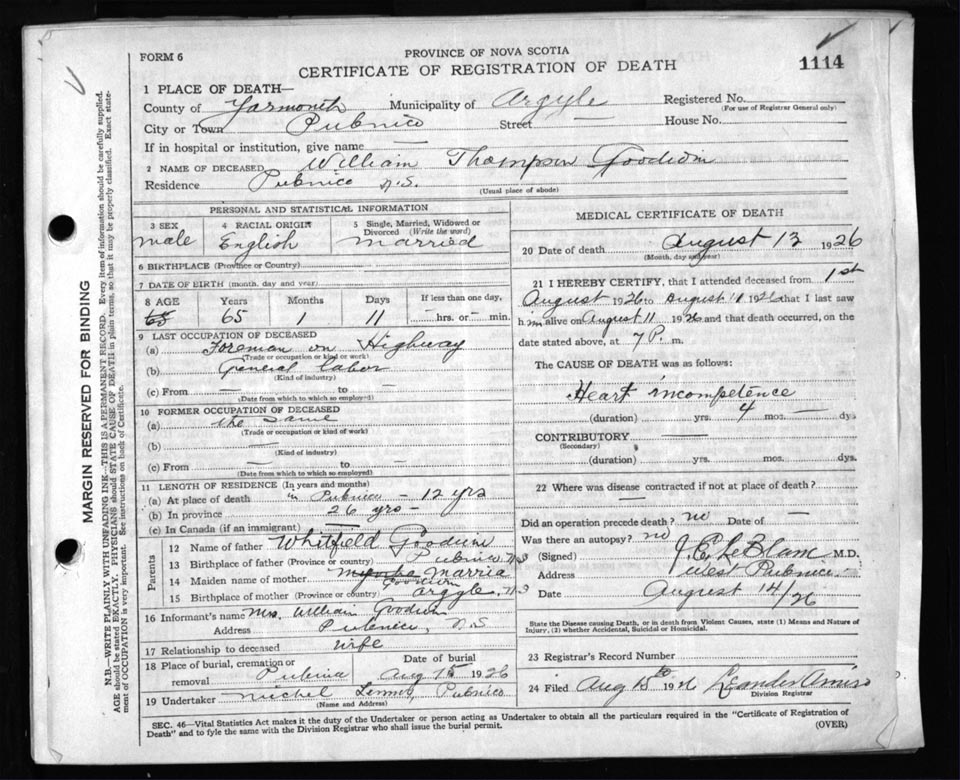 FORM 6
PROVINCE OF NOVA SCOTIA
CERTIFICATE OF REGISTRATION OF DEATH
1114
1 PLACE OF DEATH—
County of Yarmouth Municipality of Argyle Registered No.
(For use of Registrar General only)
City or Town Pubnico Street — House No.
If in hospital or institution, give name —
2 NAME OF DECEASED William Thompson Goodwin
Residence Pubnico N.S.
(Usual place of abode)
PERSONAL AND STATISTICAL INFORMATION
3 SEX 4 RACIAL ORIGIN 5 Single, Married, Widowed or Divorced (Write the word)
male English Married
6 BIRTHPLACE (Province or Country)
7 DATE OF BIRTH (month, day and year)
8 AGE Years Months Days If less than one day,
65 65 1 11 — hrs. or — min.
9 LAST OCCUPATION OF DECEASED
(a) Foreman on Highway
(Trade or occupation or kind or work)
(b) General labor
(Kind of industry)
(c) From — to —
(Date from which to which so employed)
10 FORMER OCCUPATION OF DECEASED
(a) the same
(Trade or occupation or kind of work)
(b) —
(Kind of industry)
(c) From — to —
(Date from which to which so employed)
11 LENGTH OF RESIDENCE (In years and months)
(a) At place of death in Pubnico – 12 yrs
(b) In province 26 yrs –
(c) In Canada (if an immigrant) —
Parents
12 Name of father Whitfield Goodwin
13 Birthplace of father (Province or country) Pubnico N.S
14 Maiden name of mother Marria Goodwin
15 Birthplace of mother (Province or country) Argyle, N.S
16 Informant's name Mrs. William Goodwin
Address Pubnico, N.S
17 Relationship to deceased wife
18 Place of burial, cremation or removal Pubnico
Date of burial Aug 15 1926
19 Undertaker Michel Pubnico
(Name and Address)
MEDICAL CERTIFICATE OF DEATH
20 Date of death August 13 1926
(Month, day and year)
21 I HEREBY CERTIFY, that I attended deceased from 1st
August 1926 to August 11 1926 that I last saw
him alive on August 11 1926 and that death occurred, on
date stated above, at 7 P. m.
The CAUSE OF DEATH was as follows:
Heart incompetence
(duration) yrs. 4 mos. — dys
CONTRIBUTORY —
(Secondary)
(duration) yrs. mos. dys.
22 Where was disease contracted if not at place of death?
—
Did an operation precede death? no Date of —
Was there an autopsy? no
(Signed) J. E. LeBlanc M.D.
Address West Pubnico
Date August 14/26
State the Disease causing Death, or in death from Violent Causes, state (1) Means and Nature of
Injury, (2) whether Accidental, Suicidal or Homicidal.
23 Registrar's Record Number
24 Filed Aug 15 1926 Leander
Division Registrar
SEC. 46—Vital Statistics Act makes it the duty of the Undertaker or person acting as Undertaker to obtain all the particulars required in the "Certificate of Registration of
Death" and to fyle the same with the Division Registrar who shall issue the burial permit.
(OVER)
MARGIN RESERVED FOR BINDING
N.B.—WRITE PLAINLY WITH UNFADING INK—THIS IS A PERMANENT RECORD. Every item of information should be carefully supplied.
AGE should be stated EXACTLY. PHYSICIANS should STATE CAUSE OF DEATH in plain terms, so that it may be properly classified. Exact state-
ment of OCCUPATION is very important. See instructions on back of Certificate.